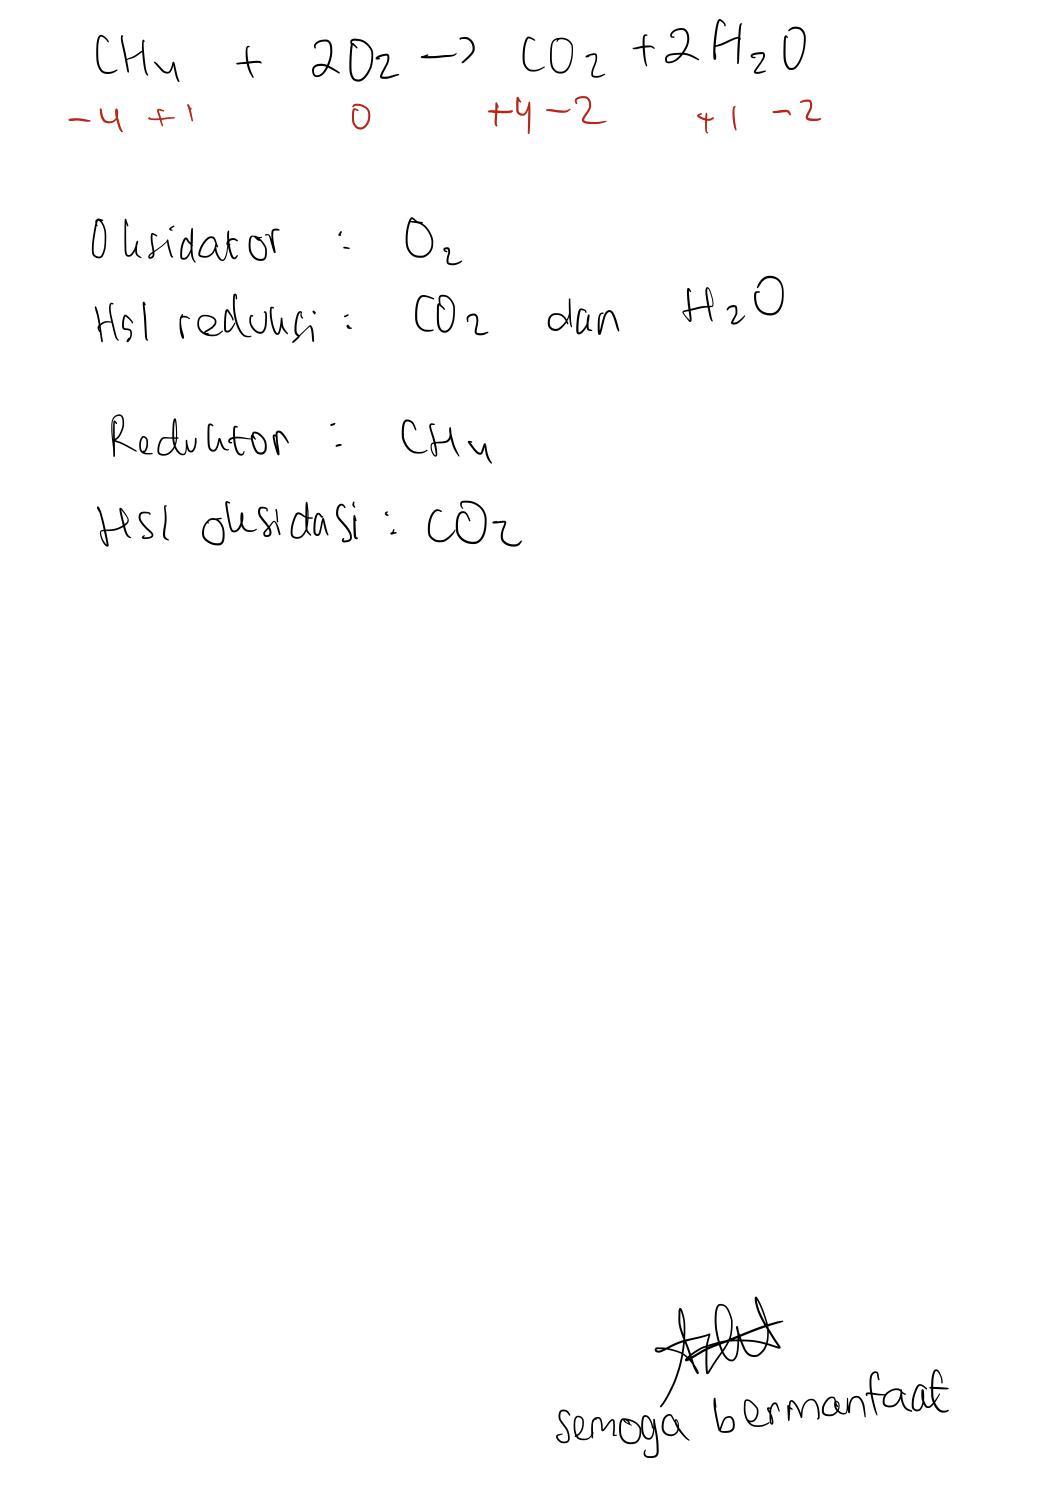 CH4 + 2O2 → CO2 + 2H2O
-4 +1 0 +4 -2 +1 -2
Oksidator : O2
Hsl reduksi : CO2 dan H2O
Reduktor : CH4
Hsl oksidasi : CO2
semoga bermanfaat